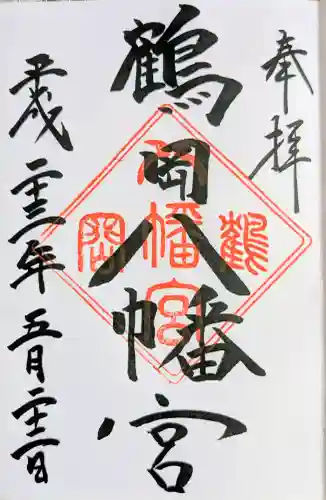 奉拝
鶴岡八幡宮
平成二十三年五月二十二日
鶴
八幡宮
岡